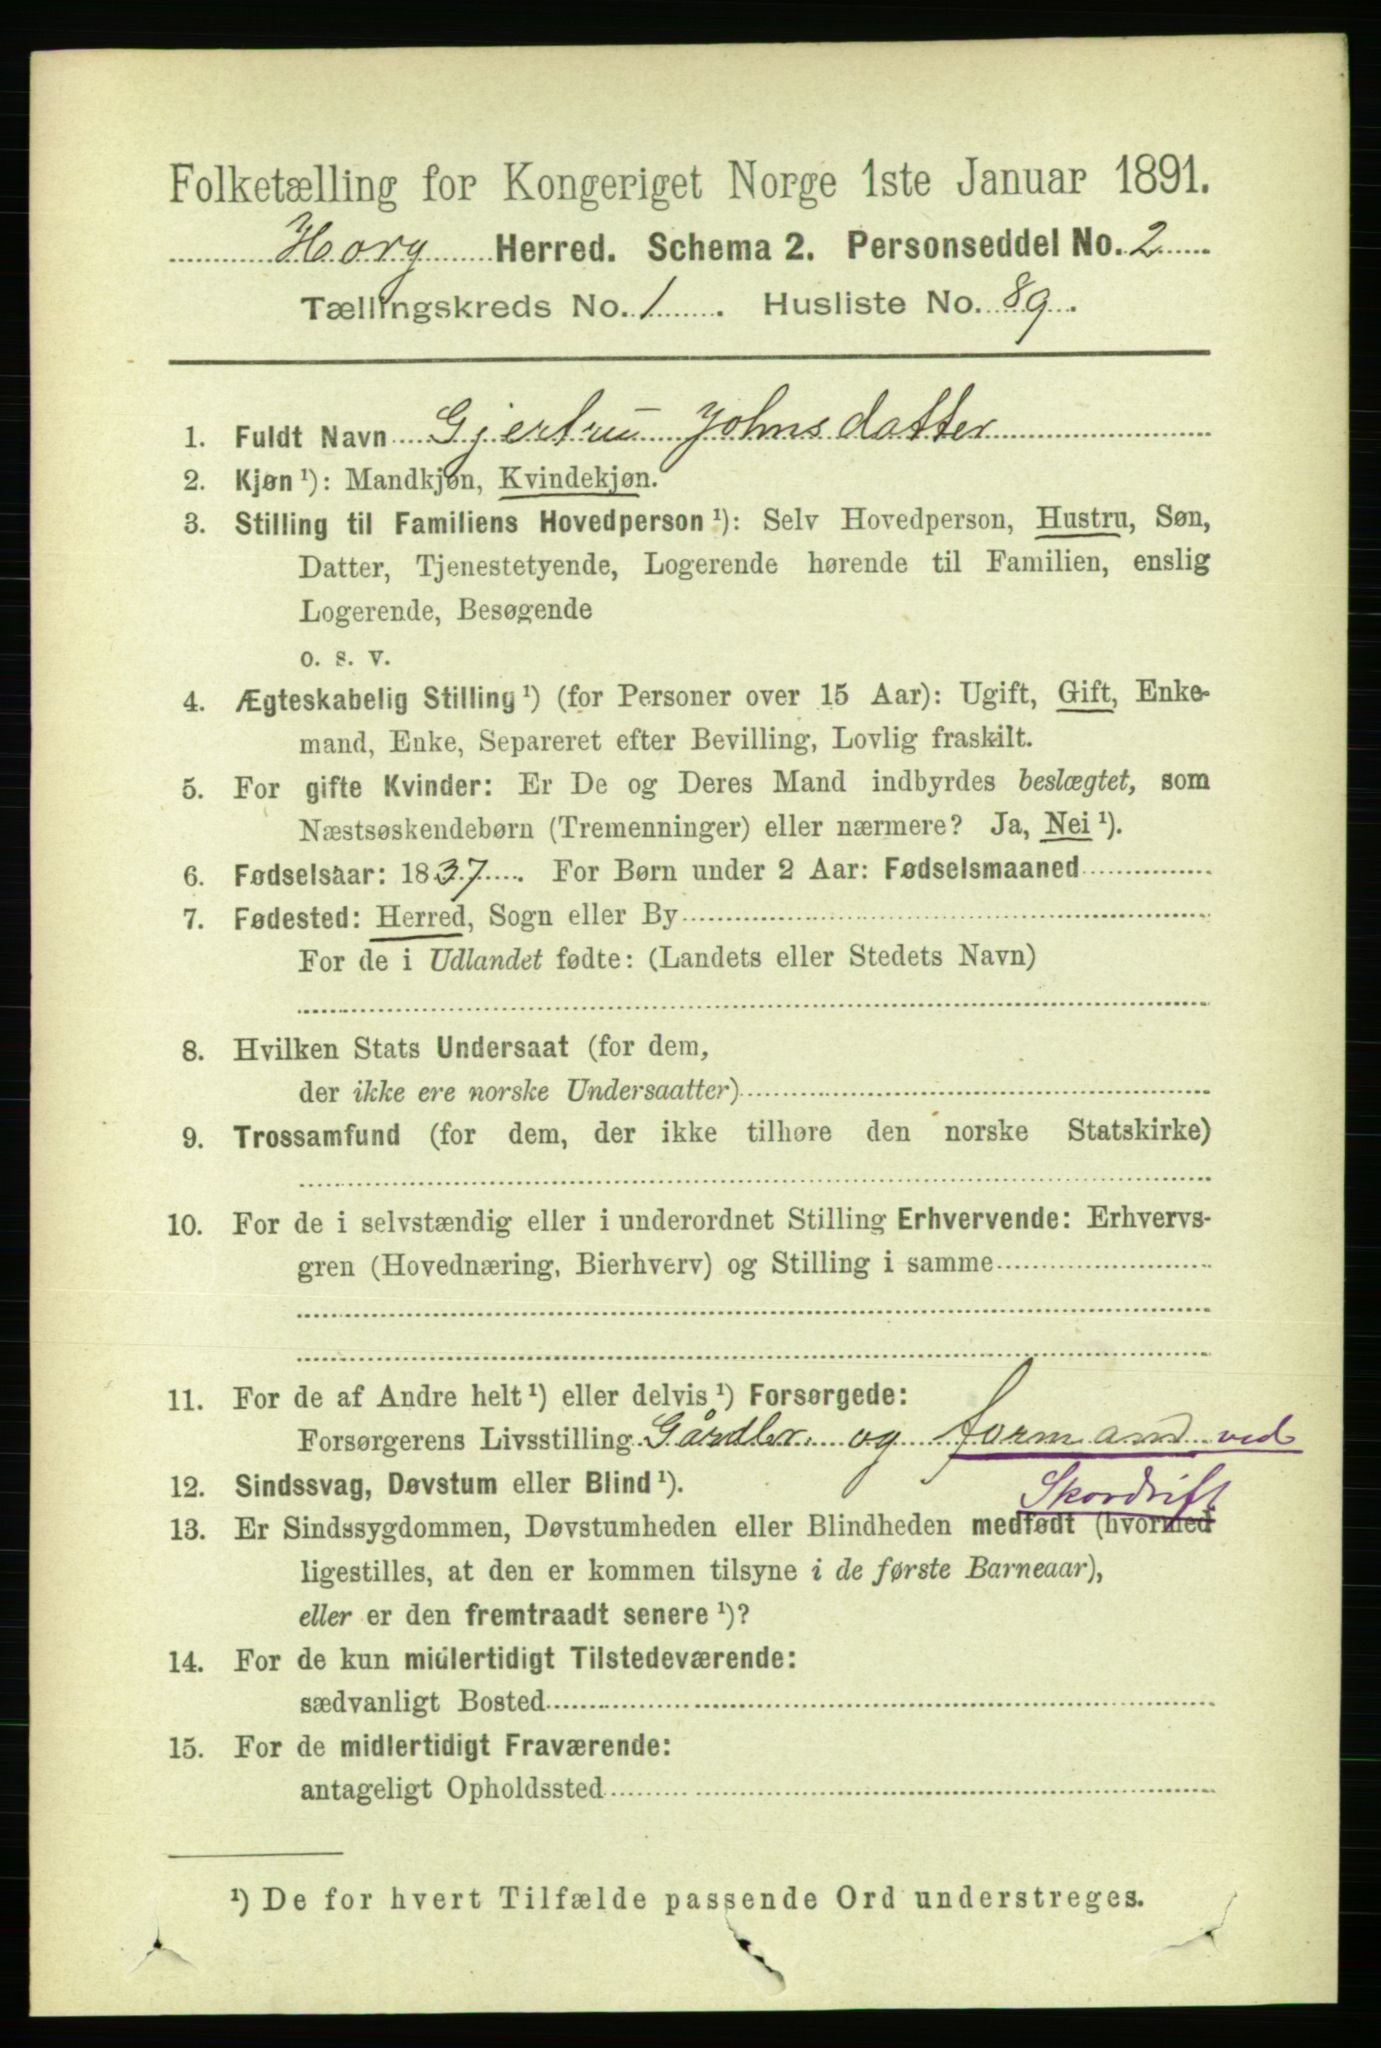 Folketælling for Kongeriget Norge 1ste Januar 1891.
Horg Herred. Schema 2. Personseddel No. 2
Tællingskreds No. 1. Husliste No. 89.
1. Fuldt Navn Gjertru Johnsdatter
2. Kjøn ¹): Mandkjøn, Kvindekjøn.
3. Stilling til Familiens Hovedperson ¹): Selv Hovedperson, Hustru, Søn,
Datter, Tjenestetyende, Logerende hørende til Familien, enslig
Logerende, Besøgende
o. s. v.
4. Ægteskabelig Stilling ¹) (for Personer over 15 Aar): Ugift, Gift, Enke-
mand, Enke, Separeret efter Bevilling, Lovlig fraskilt.
5. For gifte Kvinder: Er De og Deres Mand indbyrdes beslægtet, som
Næstsøskendebørn (Tremenninger) eller nærmere? Ja, Nei ¹).
6. Fødselsaar: 1837. For Børn under 2 Aar: Fødselsmaaned
7. Fødested: Herred, Sogn eller By
For de i Udlandet fødte: (Landets eller Stedets Navn)
8. Hvilken Stats Undersaat (for dem,
der ikke ere norske Undersaatter)
9. Trossamfund (for dem, der ikke tilhøre den norske Statskirke)
10. For de i selvstændig eller i underordnet Stilling Erhvervende: Erhvervs-
gren (Hovednæring, Bierhverv) og Stilling i samme
11. For de af Andre helt ¹) eller delvis ¹) Forsørgede:
Forsørgerens Livsstilling Gårdbr. og formand ved
Skovdrift
12. Sindssvag, Døvstum eller Blind ¹).
13. Er Sindssygdommen, Døvstumheden eller Blindheden medfødt (hvormed
ligestilles, at den er kommen tilsyne i de første Barneaar),
eller er den fremtraadt senere ¹)?
14. For de kun midlertidigt Tilstedeværende:
sædvanligt Bosted
15. For de midlertidigt Fraværende:
antageligt Opholdssted
¹) De for hvert Tilfælde passende Ord understreges.